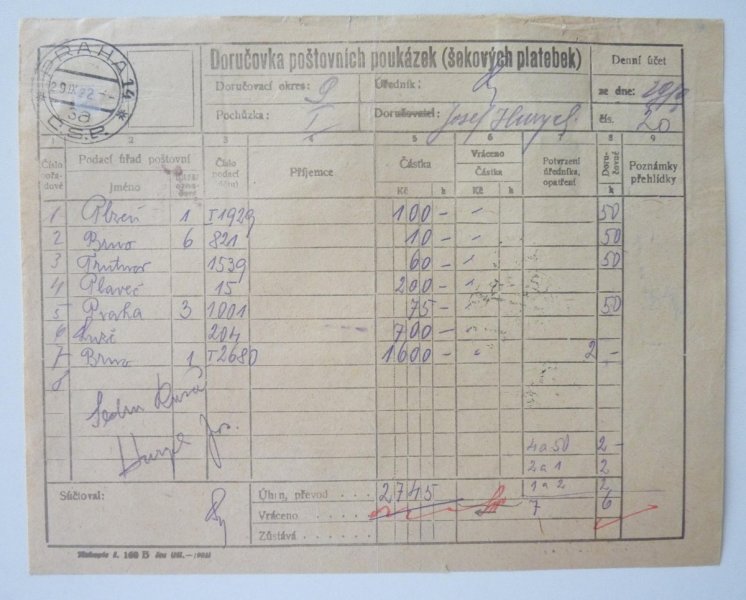 PRAHA 14
Č.S.P.
Doručovka poštovních poukázek (šekových platebek)
Denní účet
Doručovací okres: 9 Úředník:
ze dne:
Pochůzka: I Doručovatel: Josef
čís. 20
1 2 3 4 5 6 7 8 9
Číslo pořadové Podací úřad poštovní Jméno Číslo podací Příjemce Částka Kč h Vráceno Částka Kč h Potvrzení úředníka, opatření Doručovné h Poznámky přehlídky
1 Plzeň 1 T1929 100 - 50
2 Brno 6 821 10 - 50
3 Trutnov 1539 60 - 50
4 Plaveč 15 200 -
5 Praha 3 1001 75 - 50
6 204 700 -
7 Brno 1 T2680 1600 - 2 -
8
Sedm Kusů
4 a 50 2 -
2 a 1 2
1 a 2 2
7 6
Súčtoval:
Úhrn, převod . . . . 2745
Vráceno . . . . .
Zůstává . . . . .
160 B